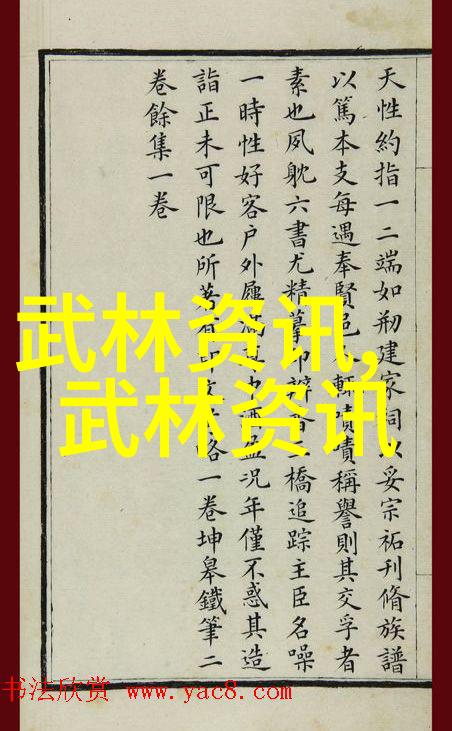 天性約指一二端如刱建家祠以妥宗祏刊脩族譜
以篤本支每遇奉賢邑軒嘖嘖稱譽則其交孚者
素也夙躭六書尤精摹印辨香二橋追踪主臣名噪
一時性好客户外屨滿況年僅不惑其造
詣正未可限也所著有印一卷坤皋鐵筆二
卷餘集一卷
武林资讯,
武林资讯
书法欣赏 www.yac8.com